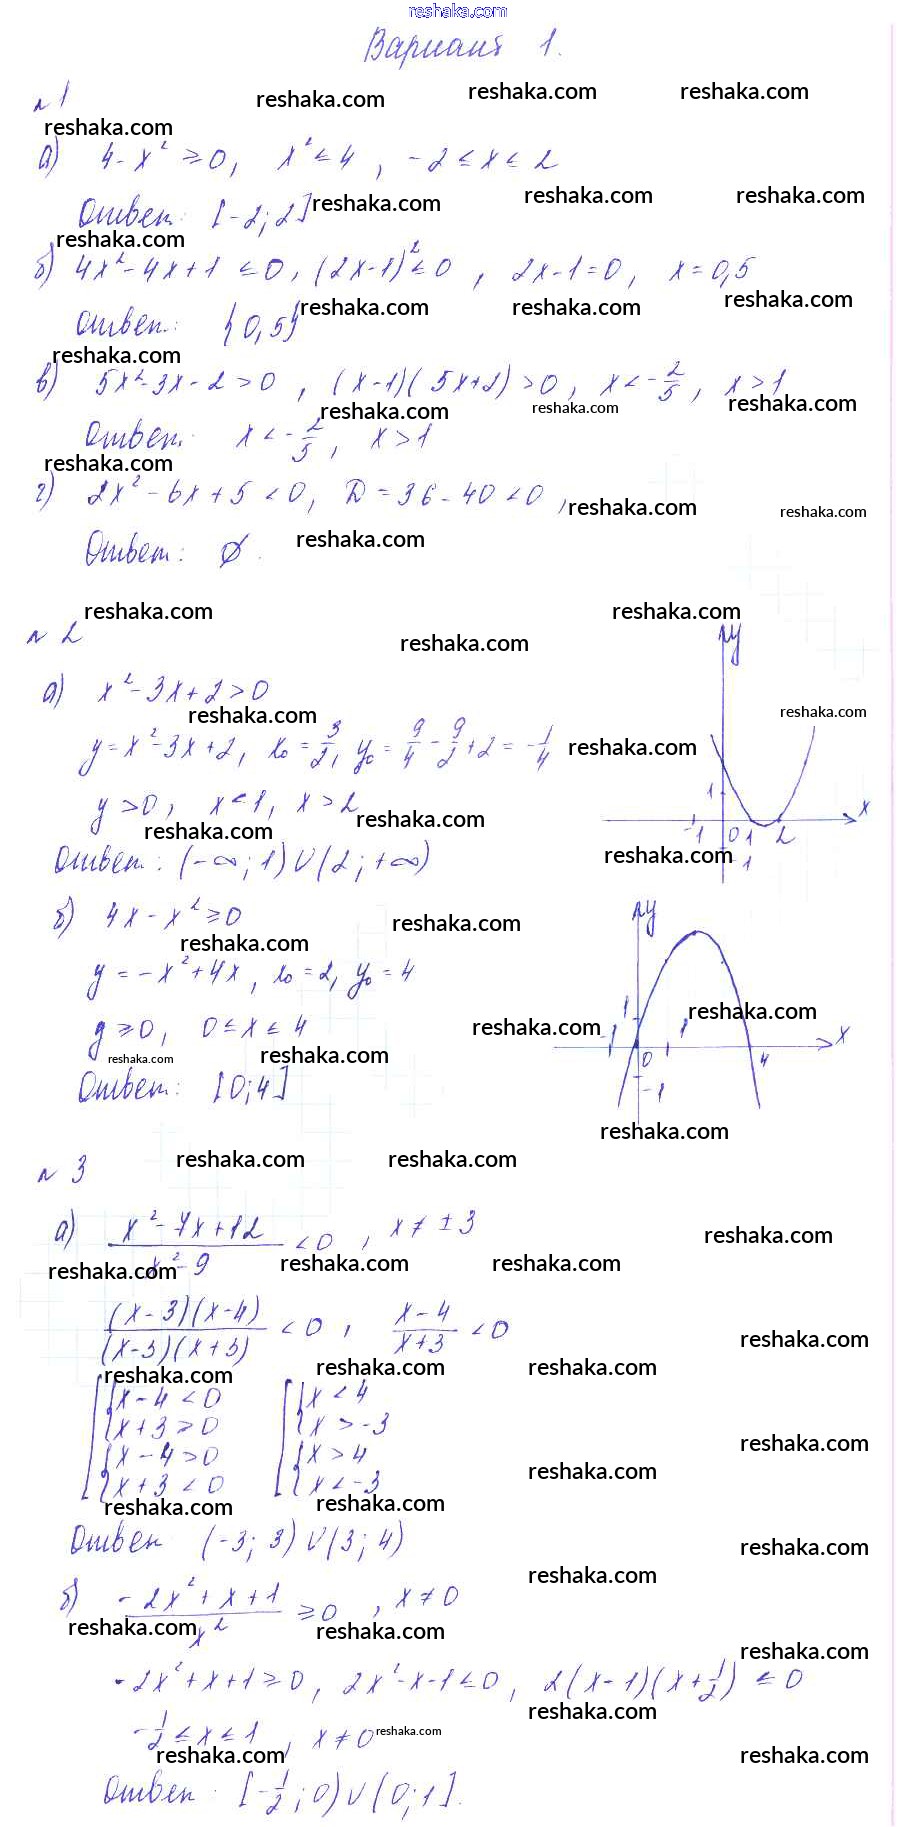 reshaka.com
Вариант 1.
reshaka.com reshaka.com reshaka.com
№1
reshaka.com
а) 4-x² ≥ 0, x² ≤ 4, -2 ≤ x ≤ 2
reshaka.com reshaka.com
Ответ: [-2; 2] reshaka.com
reshaka.com
б) 4x²-4x+1 ≤ 0, (2x-1)² ≤ 0, 2x-1=0, x=0,5
reshaka.com reshaka.com reshaka.com
Ответ: {0,5}
reshaka.com
в) 5x²-3x-2 > 0, (x-1)(5x+2) > 0, x < -2/5, x > 1
reshaka.com reshaka.com reshaka.com
Ответ. x < -2/5, x > 1
reshaka.com
г) 2x²-6x+5 < 0, D = 36-40 < 0,
reshaka.com reshaka.com
Ответ: ∅. reshaka.com
reshaka.com reshaka.com
№ 2
reshaka.com
а) x²-3x+2 > 0
reshaka.com reshaka.com
y = x²-3x+2, x₀ = 3/2, y₀ = 9/4 - 9/2 + 2 = -1/4 reshaka.com
y > 0, x < 1, x > 2
reshaka.com reshaka.com
Ответ: (-∞; 1) ∪ (2; +∞) reshaka.com
y
1
-1 0 1 2 x
-1
б) 4x - x² ≥ 0
reshaka.com reshaka.com
y = -x²+4x, x₀ = 2, y₀ = 4
y ≥ 0, 0 ≤ x ≤ 4 reshaka.com reshaka.com
reshaka.com reshaka.com
Ответ: [0; 4]
y
1
-1 0 1 4 x
-1
reshaka.com
reshaka.com reshaka.com
№ 3
а) (x²-7x+12)/(x²-9) < 0, x ≠ ±3
reshaka.com
reshaka.com reshaka.com reshaka.com
(x-3)(x-4)/(x-3)(x+3) < 0, (x-4)/(x+3) < 0
reshaka.com
reshaka.com reshaka.com reshaka.com
x-4 < 0 x < 4
x+3 > 0 x > -3
reshaka.com
x-4 > 0 x > 4
x+3 < 0 x < -3
reshaka.com
reshaka.com reshaka.com
Ответ (-3; 3) ∪ (3; 4)
reshaka.com
reshaka.com
б) (-2x²+x+1)/x² ≥ 0, x ≠ 0
reshaka.com reshaka.com
reshaka.com
-2x²+x+1 ≥ 0, 2x²-x-1 ≤ 0, 2(x-1)(x+1/2) ≤ 0
reshaka.com
-1/2 ≤ x ≤ 1, x ≠ 0 reshaka.com
reshaka.com reshaka.com
Ответ: [-1/2; 0) ∪ (0; 1].